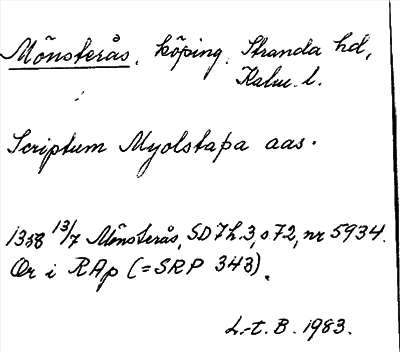 Mönsterås, köping, Stranda hd,
Kalm. l.
Scriptum Myolstapa aas.
1358 13/7 Mönsterås, SD 7 h. 3, s 72, nr 5934.
Or i RAp (= SRP 343).
L-t. B. 1983.